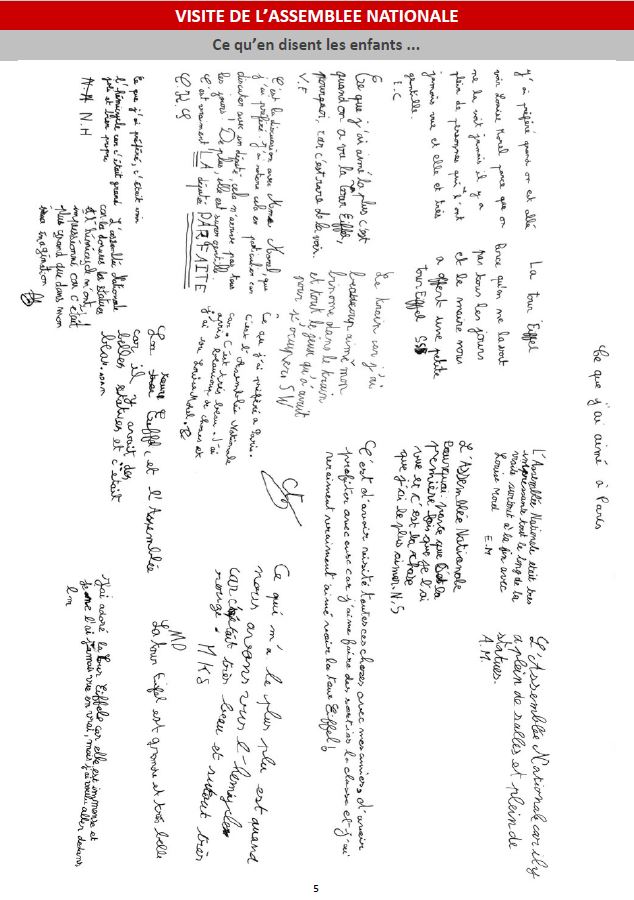 VISITE DE L'ASSEMBLEE NATIONALE
Ce qu'en disent les enfants ...
Ce que j'ai aimé à Paris
y'ai préféré quand on est allé
voir Louise Morel parce que on
ne la voit jamais il y a
plein de personnes qui l'ont
jamais vue et elle et très
gentille
E.C
La tour Eiffel
Parce qu'on ne la voit
pas tous les jours
et le maire nous
a offert une petite
tour Eiffel
L'Assemblée Nationale était très
impressionante tout le long de la
visite surtout à la fin avec
Louise Morel
E.M
L'Assemblée National car il y
a plein de salles et plein de
statues.
A.M.
Ce que j'ai aimé le plus c'est
quand on a vu la tour Eiffel,
pourquoi, car c'est rare de la voir.
V.F
Le train car j'ai
beaucoup aimé mon
binome dans le train
et tout le jeux qu'il avait
pour s'occuper. S W
L'Assemblée Nationale
pourquoi parce que c'est la
première fois que je l'ai
vue et c'est la chose
que j'ai le plus aimer. N.S
C'est d'avoir visité toutes ces choses, avec mes amies d'avoir
profiter avec eux car j'aime faire des sorties la classe et j'ai
vraiment vraiment aimé voir la tour Eiffel !
C'est la discussion avec Mme Morel, que
j'ai préféré. J'ai adoré cela en particulier car
discuter avec un député, cela n'arrive pas tous
les jours ! De plus, elle est super gentille.
C'est vraiment LA député PARFAITE
C.H.G
Ce que j'ai préféré à Paris.
C'est l'Assemblée Nationale
car. C'était très beau. J'ai
appris beaucoup de choses et
j'ai vu Louise Morel.
Ce qui m'a le plus plu est quand
nous avons vus l'hemicycle
car c'était très beau et surtout très
rouge. MKS
Ce que j'ai préféré, c'était voir
l'hémicycle car c'était grand
joli et bien propre
N.H
La tour Eiffel, et l'Assemblée
car il y avait des
belles statues et c'était
beau.
MD
La tour Eifel est grande et très belle
L'assemblée Nationale
car les dorures les statues
et l'hémicycle m'ont
impressionné car c'était
plus grand que dans mon
imagination
J'ai adoré la tour Eiffel car elle est immense et
je ne l'ai jamais vue en vrai, mais j'ai voulu aller dedans,
L.M
5